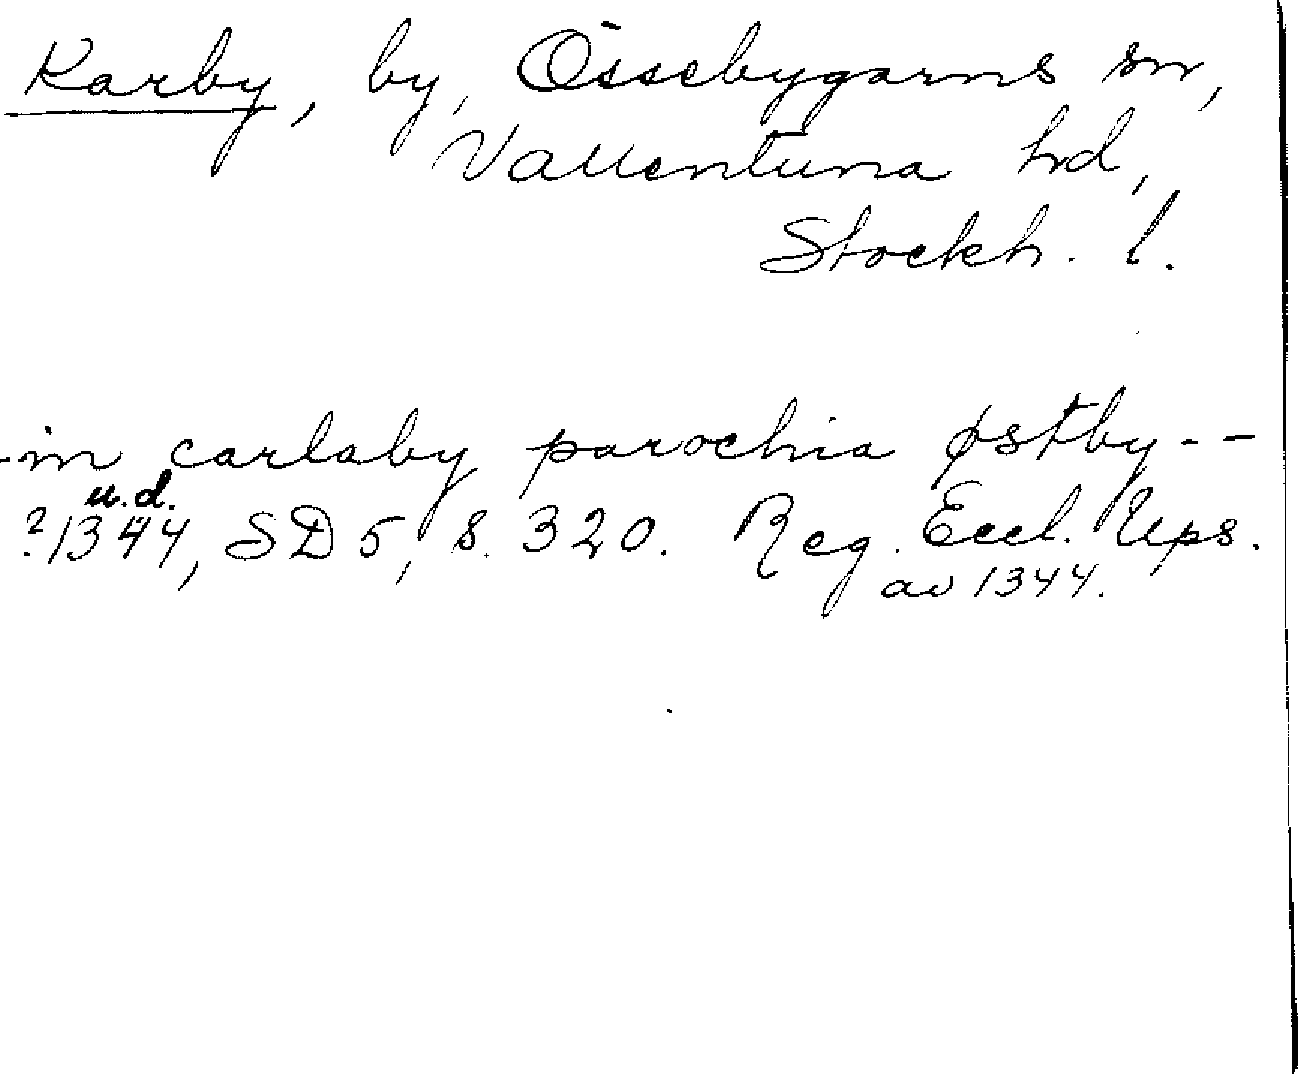 Karby, by, Össebygarns sn,
Vallentuna hd,
Stockh. l.
-in carlaby parochia østby--
u.d.
?1344, SD 5, s. 320. Reg. Eccl. Ups.
av 1344.